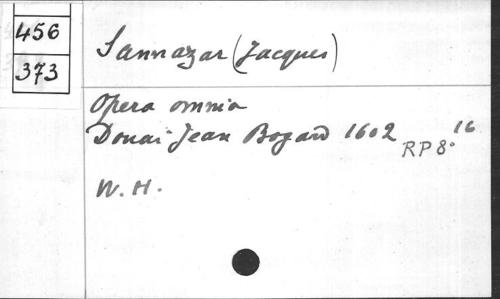 456
373
Sannazar (Jacques)
Opera omnia
Douai Jean Bogard 1602
RP 8° 16
W. H.